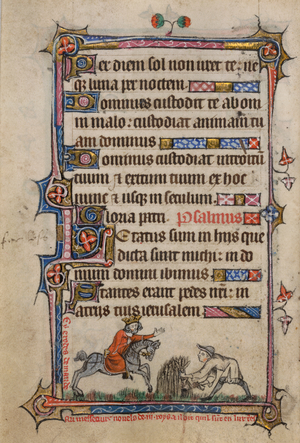 Per diem sol non uret te: ne
q; luna per noctem.
Dominus custodit te ab om
ni malo: custodiat animam tu
am dominus.
Dominus custodiat introitu
tuum & exitum tuum ex hoc
nunc & usq; in seculum.
Gloria patri. Psalmus
Letatus sum in hiis que
dicta sunt michi: in do
mum domini ibimus.
Stantes erant pedes nri: in
atriis tuis ierusalem.